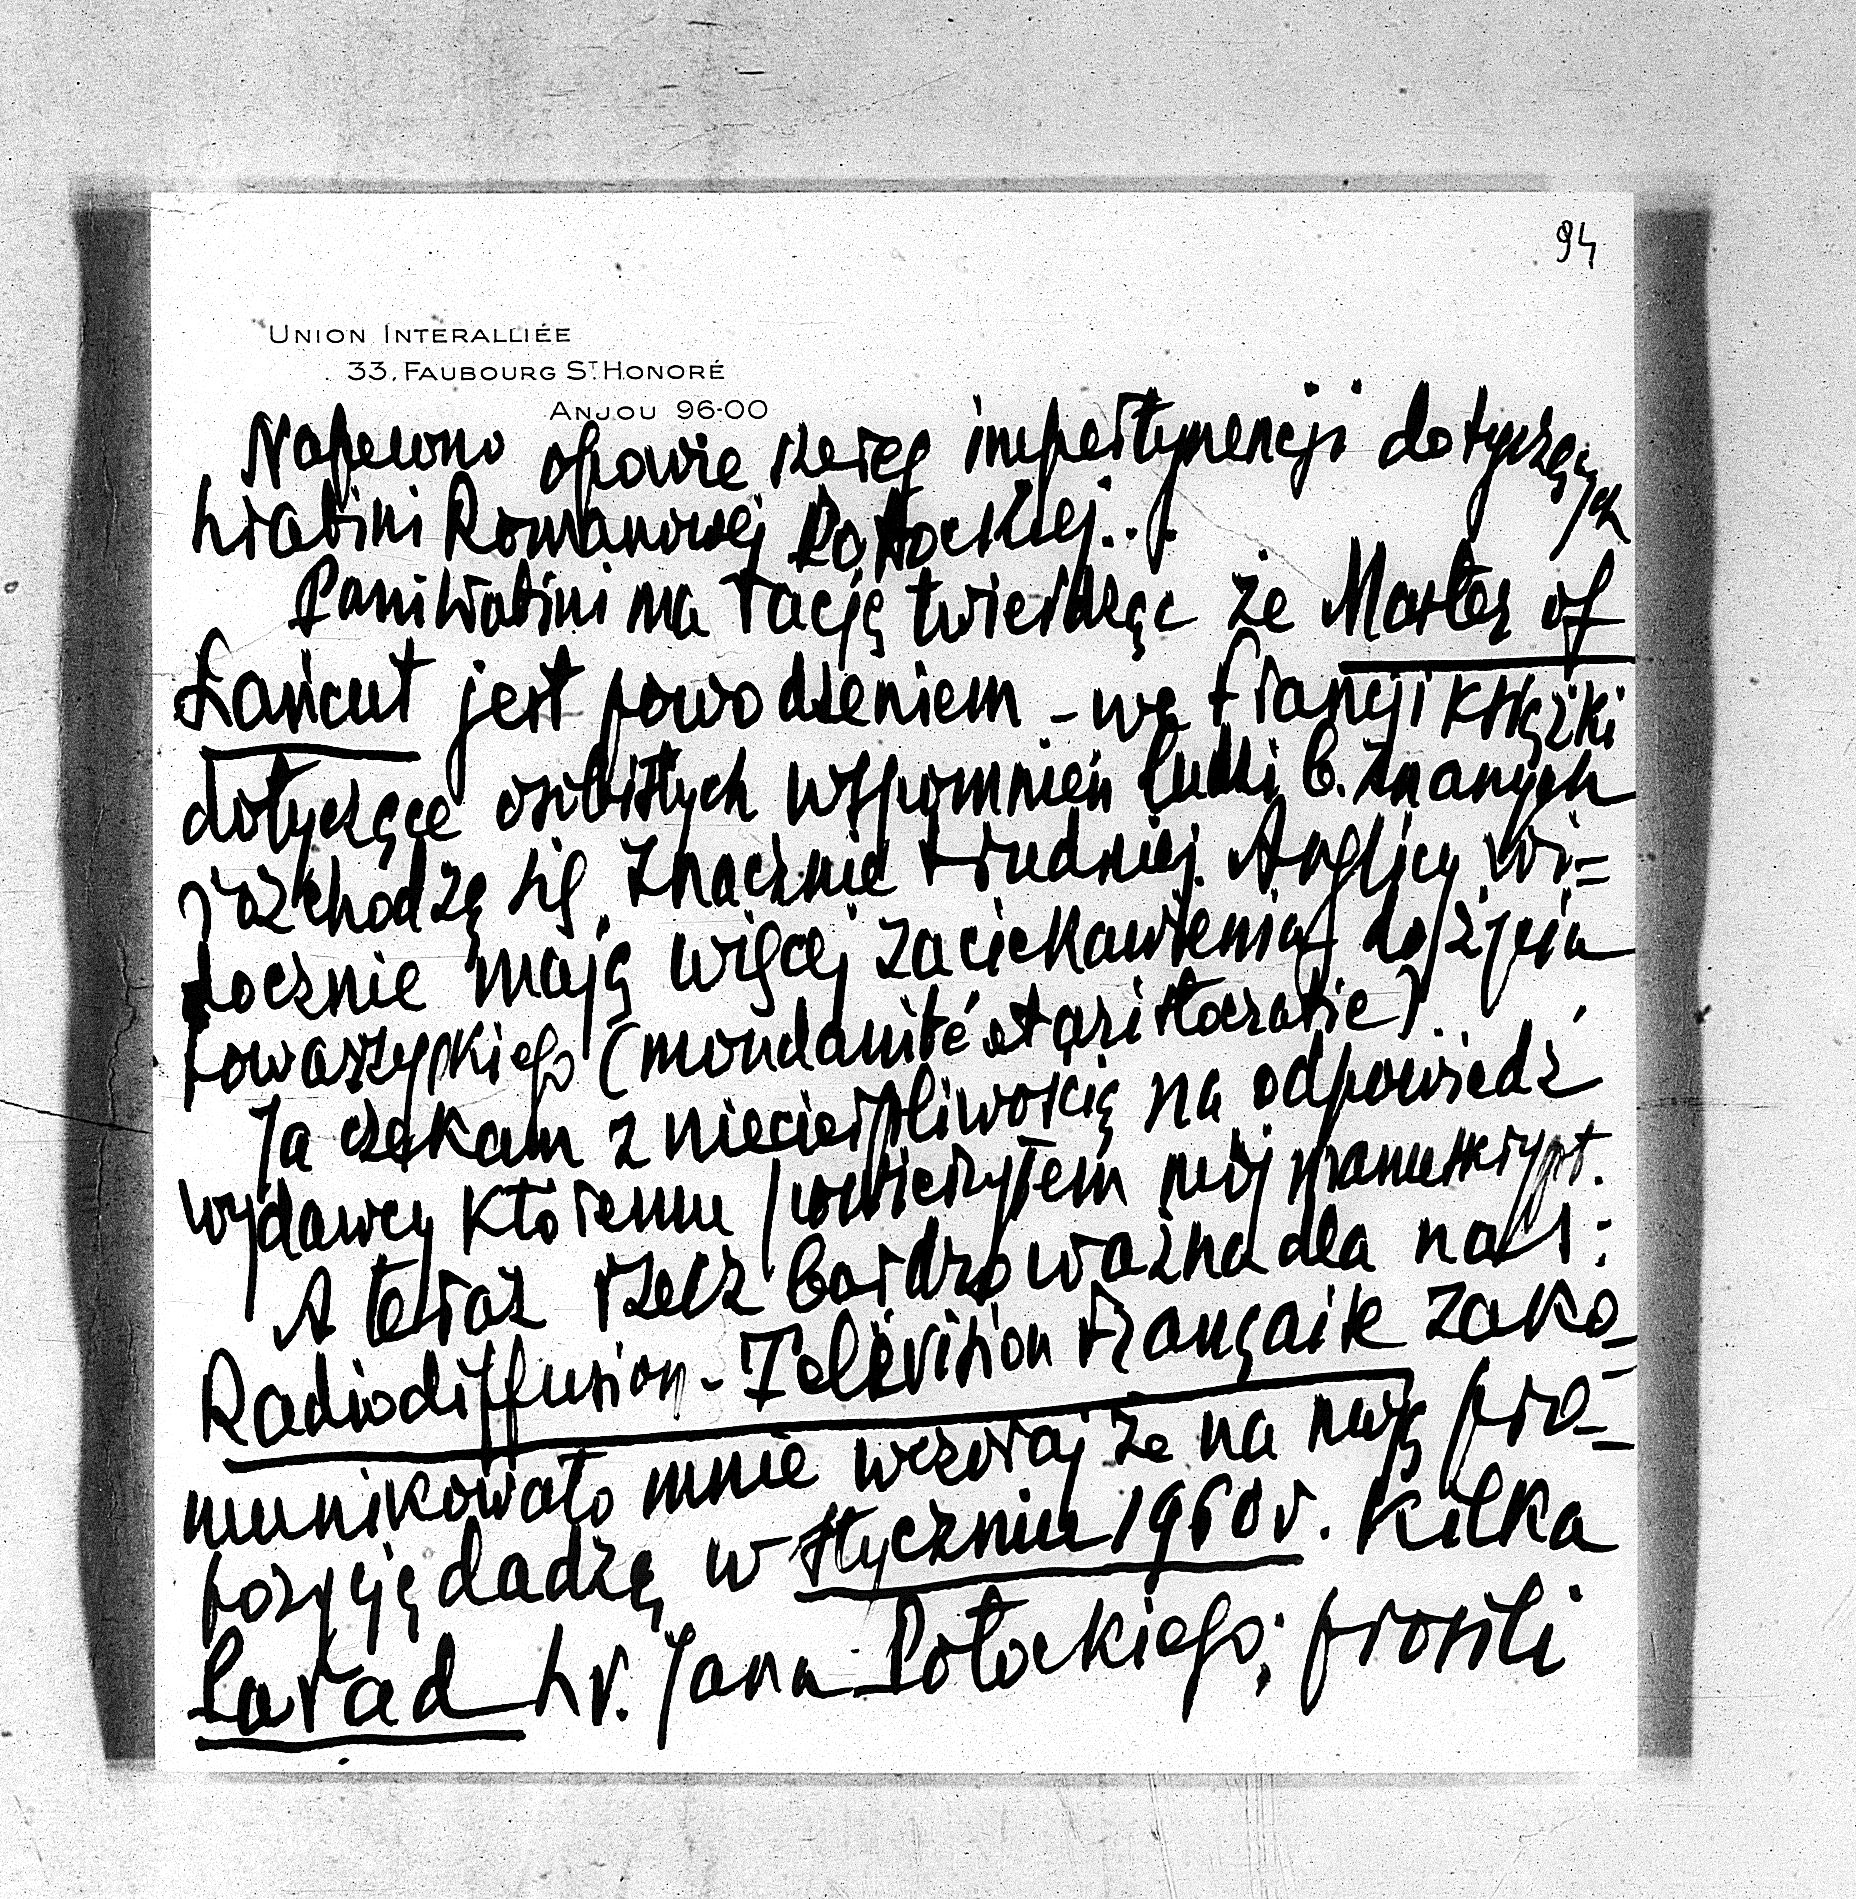 94
UNION INTERALLIÉE
33, FAUBOURG ST. HONORÉ
ANJOU 96-00
Napewno opowie szereg impertynencji dotyczących
hrabini Romanowej Potockiej...
Pani Hrabini ma rację twierdząc że Master of
Łańcut jest powodzeniem - we Francji książki
dotyczące osobistych wspomnień ludzi b. znanych
rozchodzą się znacznie trudniej. Anglicy wi=
docznie mają więcej zaciekawienia do życia
towarzyskiego (mondanité et aristocratie).
Ja czekam z niecierpliwością na odpowiedź
wydawcy któremu powierzyłem mój manuskrypt.
A teraz rzecz bardzo ważna dla nas:
Radiodiffusion-Télévision française zako=
munikowało mnie wczoraj że na moją pro=
pozycję dadzą w styczniu 1960 r. kilka
Parad hr. Jana Potockiego; prosili